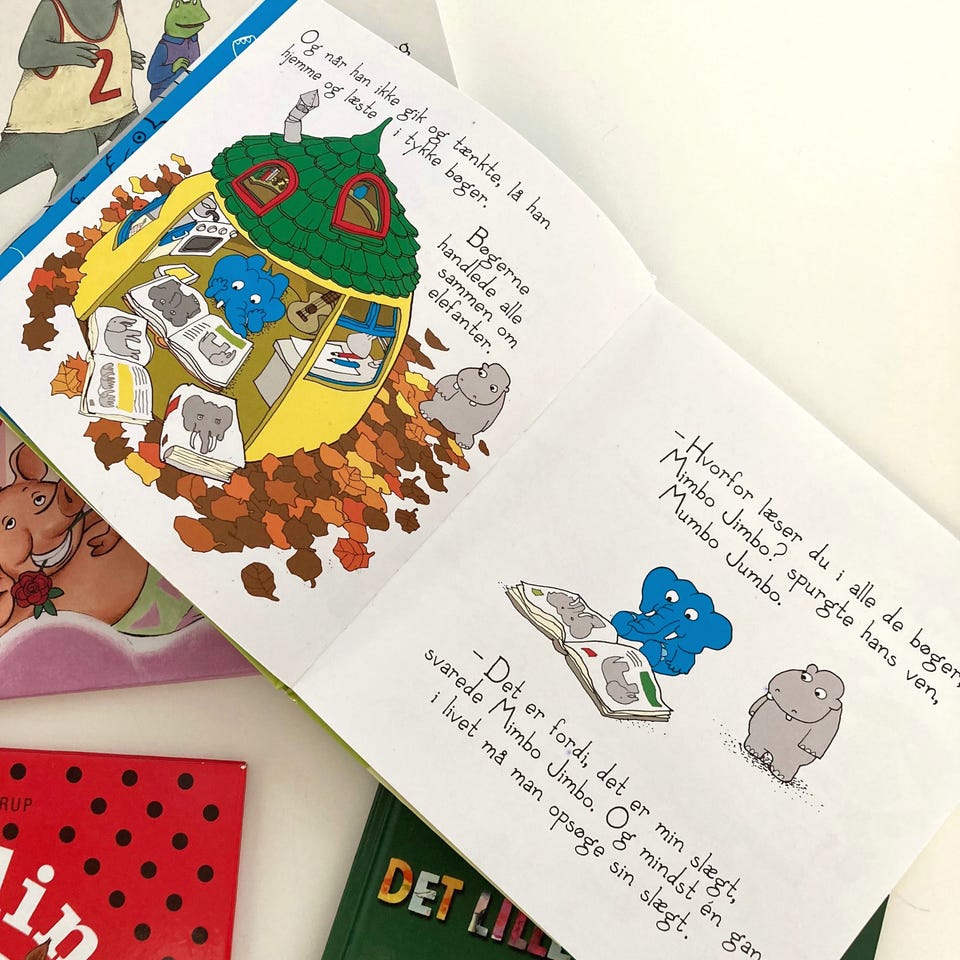 Og når han ikke gik og tænkte, lå han
hjemme og læste i tykke bøger.
Bøgerne
handlede alle
sammen om
elefanter.
-Hvorfor læser du i alle de bøger,
Mimbo Jimbo? spurgte hans ven,
Mumbo Jumbo.
-Det er fordi, det er min slægt,
svarede Mimbo Jimbo. Og mindst én gan
i livet må man opsøge sin slægt.
2
RUP
lin
DET LILLE